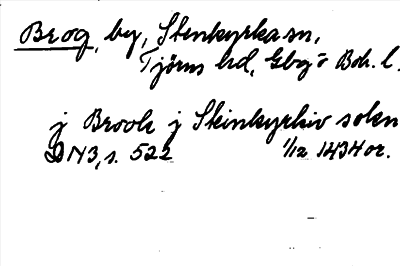 Brog, by, Stenkyrka sn,
Tjörns hd, Gbg o Boh. l.
j Brook j Skinkyrkio sokn
DN3, s. 522 1/12 1434 or.